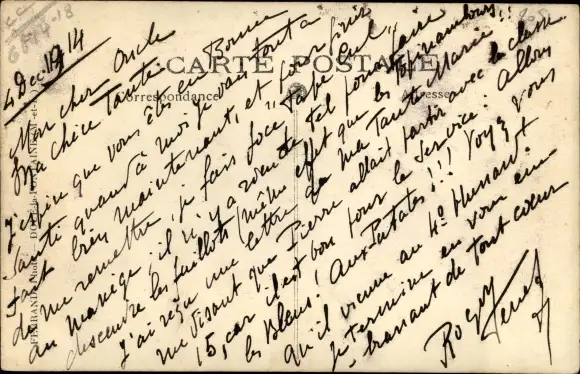 CARTE POSTALE
Correspondance
Adresse
4 Dec. 1914
Mon cher Oncle
Ma chère Tante
J'espère que vous êtes en Bonne
Santé quand à moi je vais tout à
fait bien maintenant, et pour finir
de me remettre, je fais foce "Tape cul"
au manège, il n'y a rien de tel pour faire
descendre les fayots (même effet que les topinambours!!
J'ai reçu une lettre de ma Tante Maria
me disant que Pierre allait partir avec la classe
15, car il est bon pour le service. Allons
les Bleus! Aux Patates!!! Voyez vous
qu'il vienne au 4e Hussard
Je termine en vous em
brassant de tout coeur
Roger